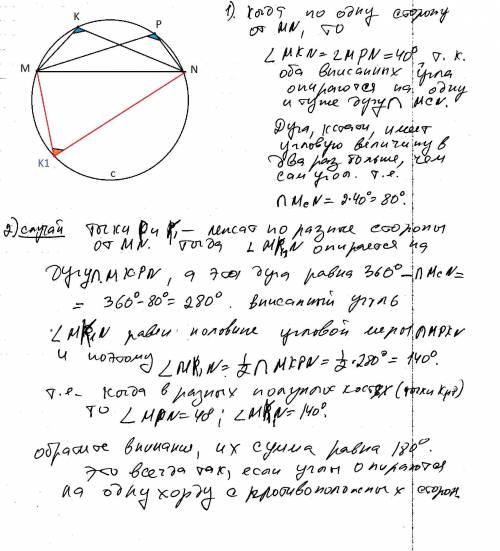 K P
M N
K1
c
1). Когда по одну сторону
от MN, то
∠MKN = ∠MPN = 40° т. к.
оба вписанных угла
опираются на одну
и ту же дугу ∩ MCN.
Дуга, кстати, имеет
угловую величину в
два раз больше, чем
сам угол. т.е.
∩ McN = 2·40° = 80°.
2) случай точки P и K₁ – лежат по разные стороны
от MN. Тогда ∠ MK₁N опирается на
дугу ∩ MKPN, а эта дуга равна 360° – ∩ McN =
= 360° - 80° = 280°. вписанный угль
∠MK₁N равен половине угловой меры ∩ MPKN
и поэтому ∠MK₁N = ½ ∩ MKPN = ½ · 280° = 140°.
т.е. когда в разных полуплоскостях (точки K и P)
то ∠ MPN = 40°; ∠MK₁N = 140°.
обратите внимание, их сумма равна 180°.
Это всегда так, если углы опираются
на одну хорду с противоположных сторон